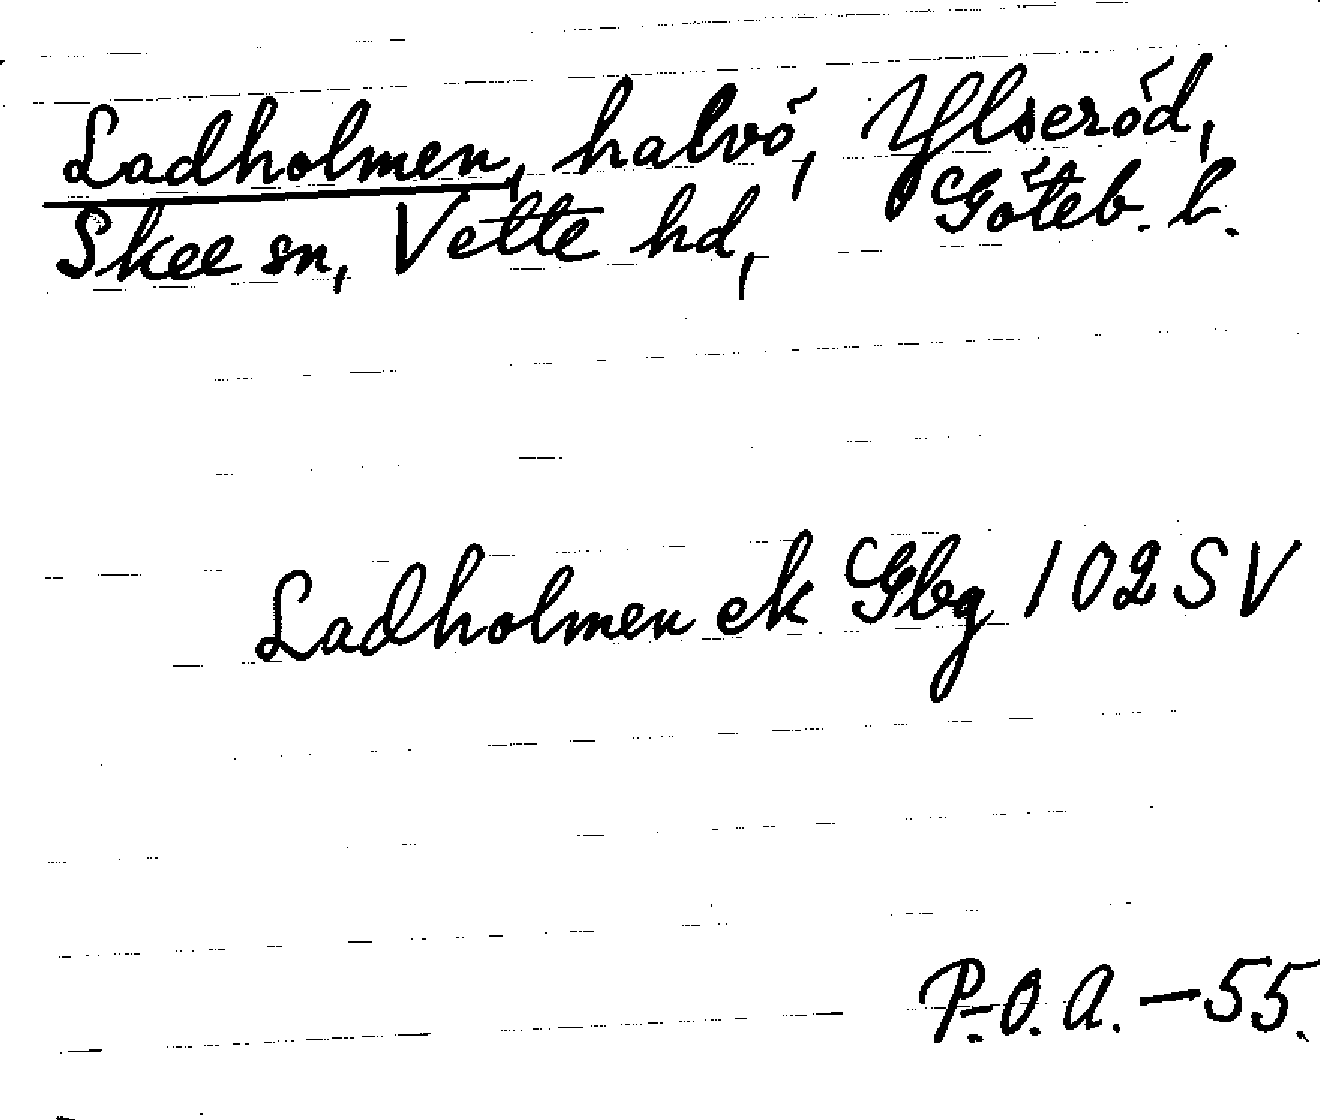 Ladholmen, halvö, Ylseröd,
Skee sn, Vette hd, Göteb. l.
Ladholmen ek Gbg 102 SV
P.-O. A. - 55.